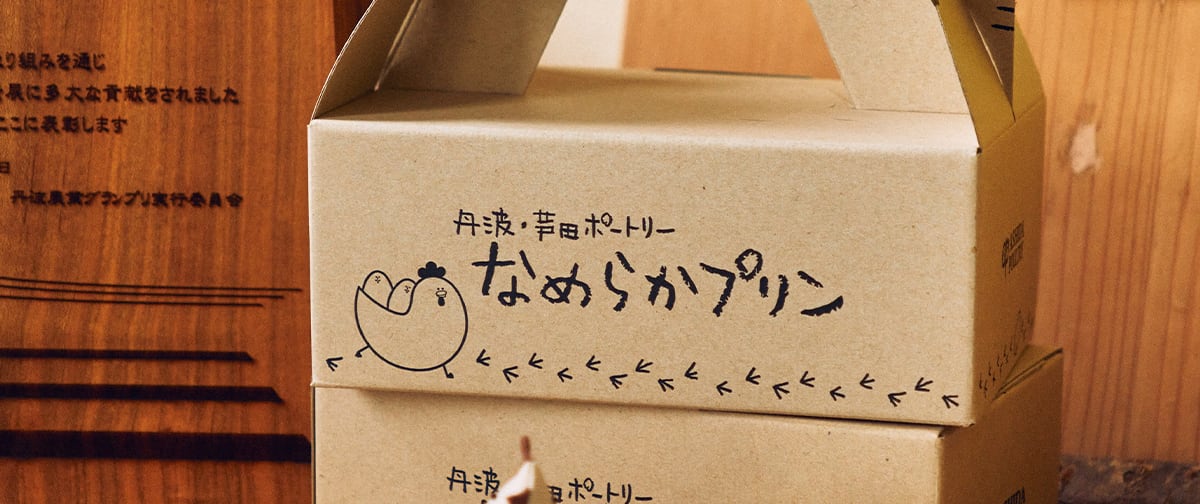 り組みを通じ
展に多大な貢献をされました
ここに表彰します
日
丹波農業グランプリ実行委員会
丹波・芦田ポートリー
なめらかプリン
ASHIDA
POULTRY
丹波 田ポートリー